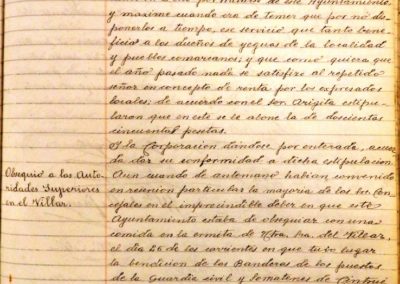 y maxime cuando era de temer que por no dis-
ponerlos a tiempo, ese servicio que tanto bene-
ficia a los dueños de yeguas de la localidad
y pueblos comarcanos; y que como quiera que
el año pasado nada se satisfizo al repetido
señor en concepto de renta por los expresados
locales; de acuerdo con el Sor. Arizita estipu-
laron que en este se le abone la de doscientas
cincuenta pesetas.
Y la Corporacion dándose por enterada, acuer-
da dar su conformidad a dicha estipulacion.
Obsequio a las Auto-
ridades Superiores
en el Villar.
Aun cuando de antemano habian convenido
en reunion particular la mayoria de los Sres. Con-
cejales en el imprescindible deber en que este
Ayuntamiento estaba de obsequiar con una
comida en la ermita de Ntra. Sra. del Villar,
el dia 26 de los corrientes en que tubo lugar
la bendicion de las Banderas de los puestos
de la Guardia civil y Somatenes de Cintrui